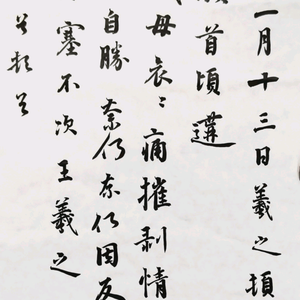 一月十三日羲之頓
首頃遘
母哀〻痛摧剥情
自勝奈何奈何因反
塞不次王羲之
首頓首